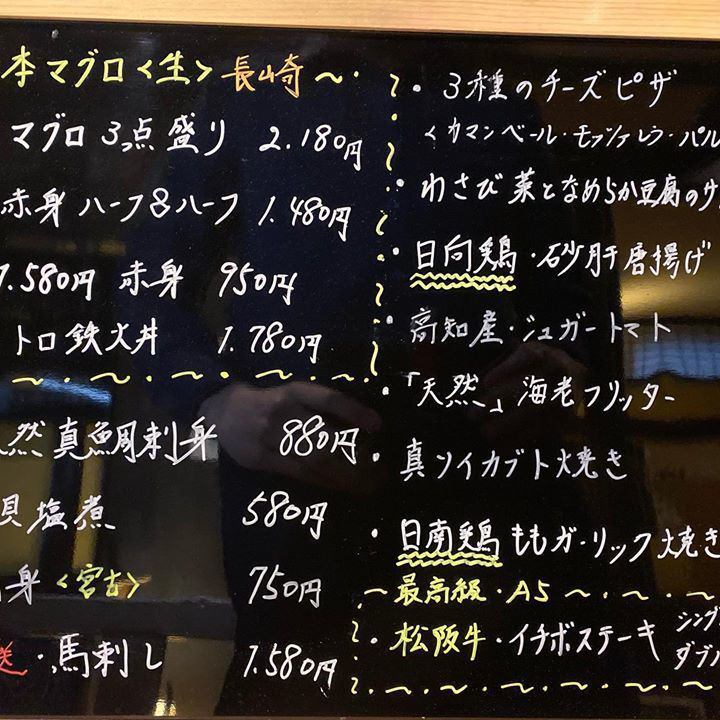 本マグロ<生>長崎～・
マグロ3点盛り 2.180円
赤身ハーフ&ハーフ 1.480円
1.580円 赤身 950円
トロ鉄火丼 1.780円
～・～・～・～・～
然真鯛刺身 880円
貝塩煮 580円
身<宮古> 750円
・馬刺し 1.580円
・3種のチーズピザ
<カマンベール・モッツァレラ・パル
・わさび菜となめらか豆腐のサ
・日向鶏・砂肝唐揚げ
・高知産・シュガートマト
・「天然」海老フリッター
・真ソイカブト焼き
・日南鶏ももガーリック焼き
～最高級・A5～・～・～
・松阪牛・イチボステーキ シング
ダブル
・～・～・～・～・～・～